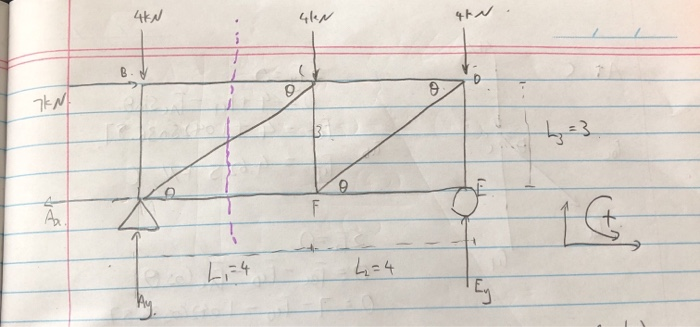 4kN 4kN 4kN
B C D
θ θ
7kN
3
L₃=3
θ θ E
Aₓ F +
L₁=4 L₂=4
Ay Ey